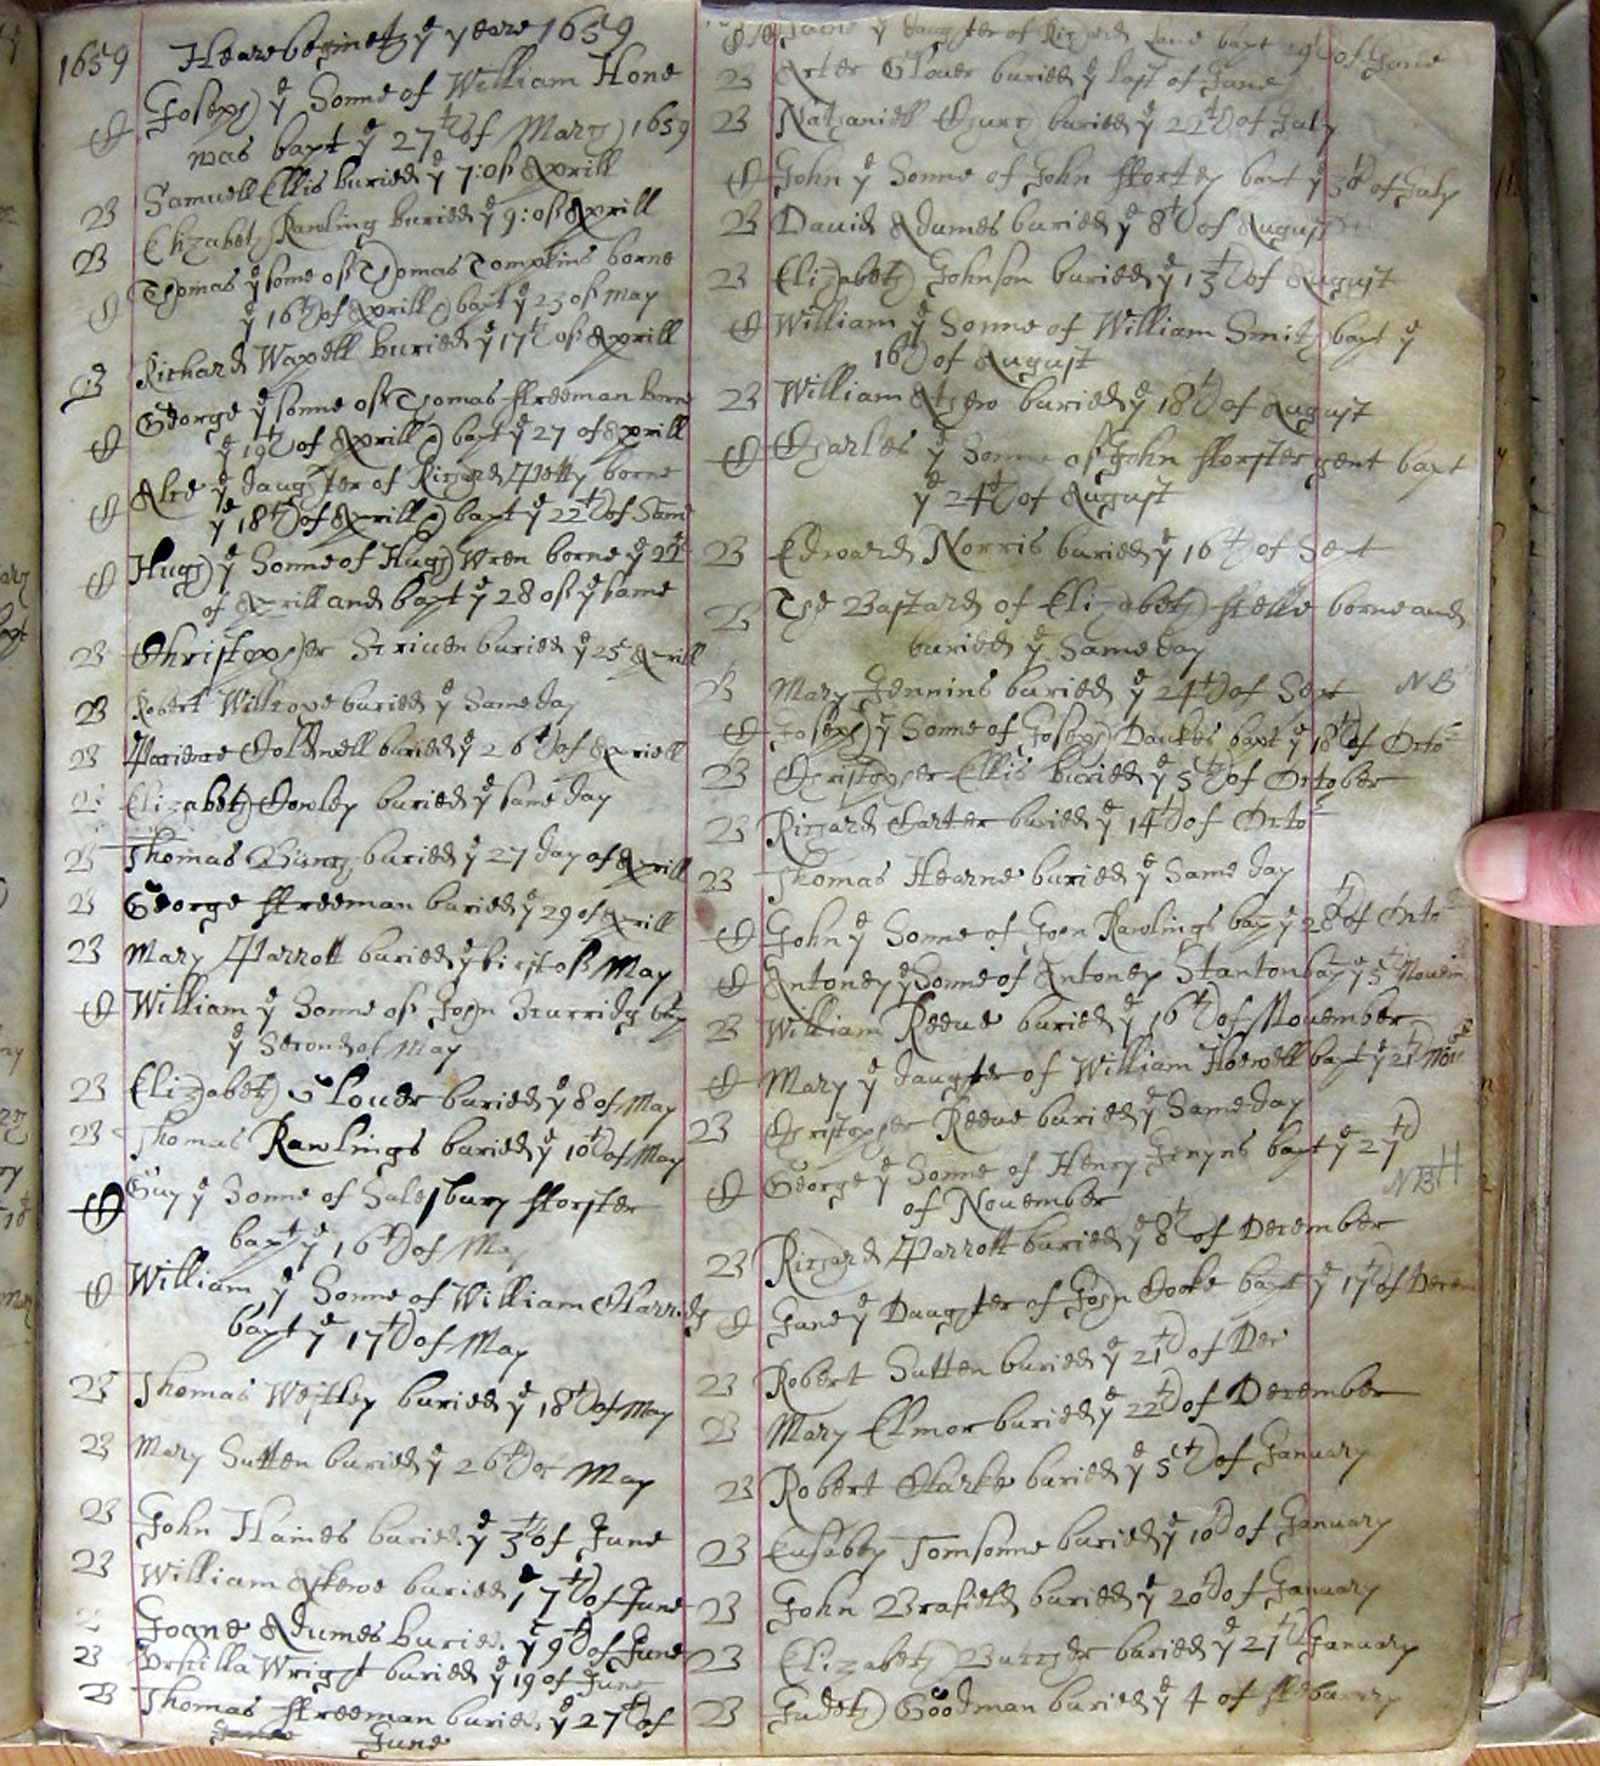 1659 Heare begineth ye yeare 1659
C Joseph ye Sonne of William Hone
was bapt ye 27th of March 1659
B Samuell Ellis buried ye 7: of Aprill
B Elizabeth Rawling buried ye 9: of Aprill
C Thomas ye sonne of Thomas Tompkins borne
ye 16th of Aprill bapt ye 23 of May
B Richard Waxell buried ye 17th of Aprill
C George ye sonne of Thomas ffreeman borne
ye 19th of Aprill bapt ye 27 of Aprill
C Alce ye daughter of Richard Petty borne
ye 18th of Aprill bapt ye 22th of Same
C Hugh ye Sonne of Hugh Wren borne ye 22th
of Aprill and bapt ye 28 of ye same
B Christopher Scriuen buried ye 25 Aprill
B Robert buried ye Same day
B Patience Coldwell buried ye 26th of Apriell
B Elizabeth Cowley buried ye same day
B Thomas buried ye 27 day of Aprill
B George ffreeman buried ye 29 of Aprill
B Mary Parrott buried ye first of May
C William ye Sonne of John Scurridg bap
ye Second of May
B Elizabeth Glouer buried ye 8 of May
B Thomas Rawlings buried ye 10th of May
C Guy ye Sonne of Salesbury fforster
bapt ye 16th of May
C William ye Sonne of William
bapt ye 17th of May
B Thomas Westley buried ye 18th of May
B Mary Sutten buried ye 26th of May
B John Haines buried ye 3th of June
B William Askewe buried ye 7th of June
B Joane Adumes buried ye 9th of June
B Wright buried ye 19 of June
B Thomas ffreeman buried ye 27th of
June June
Jane ye daughter of Richard Lane bapt 29th of June
B Arter Glouer buried ye last of June
B Nathaniell Church buried ye 22th of July
C John ye Sonne of John bapt ye 30th of July
B Dauid Adumes buried ye 8th of August
B Elizabeth Johnson buried ye 13th of August
C William ye Sonne of William Smith bapt ye
16th of August
B William buried ye 18th of August
C Charles ye Sonne of John fforster gent bapt
ye 24th of August
B Edward Norris buried ye 16th of Sept
B The Bastard of Elizabeth borne and
buried ye Same day
B Mary Jennins buried ye 24th of Sept NB
C Joseph ye Sonne of Joseph Dankes bapt ye 18th of Octo
B Christopher Ellis buried ye 5th of October
B Richard Carter buried ye 14th of Octo
B Thomas Hearne buried ye Same day
C John ye Sonne of Rawlings bap ye 28th of Octo
C Antoney ye Sonne of Antoney Stanton bap ye 5th Nouem
B William Reeue buried ye 16th of Nouember
C Mary ye daughter of William bapt ye 21th Nou
B Christopher Reeue buried ye Same day
C George ye Sonne of Henry Jenyns bapt ye 27th
of Nouember NB H
B Richard Parrott buried ye 8th of December
C Jane ye Daughter of John Cooke bapt ye 17th of Decem
B Robert Sutten buried ye 21th of Dec
B Mary Elmor buried ye 22th of December
B Robert Clarke buried ye 5th of January
B Eusabby Tomsonne buried ye 10th of January
B John Brafield buried ye 20th of January
B Elizabeth Butcher buried ye 27th January
B Judeth Goodman buried ye 4 of ffebuarry